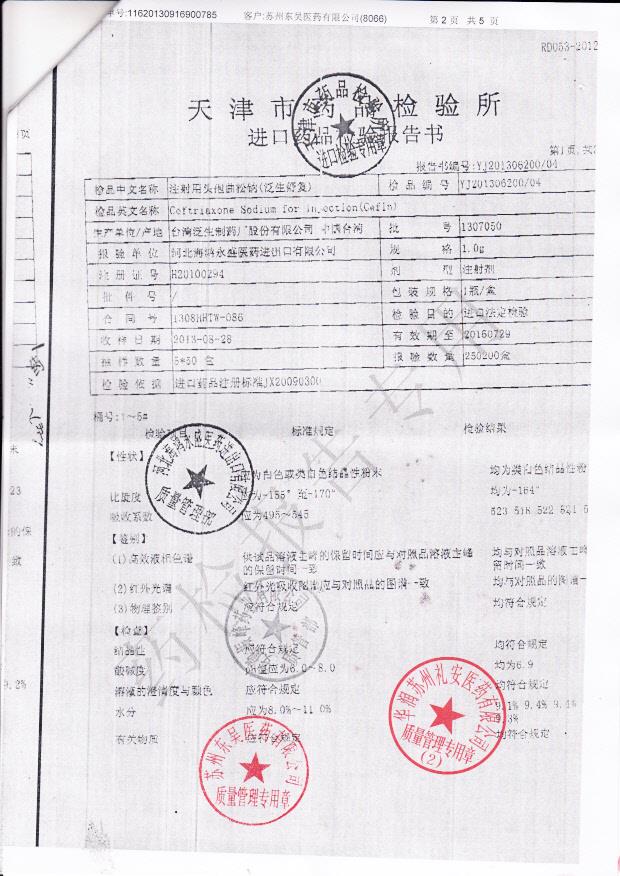 单号:11620130916900785 客户:苏州东吴医药有限公司(8066) 第 2 页 共 5 页
RD053-2012
天津市药品检验所
进口药品检验报告书
第1页,共
报告书编号:YJ201306200/04
检品中文名称 注射用头孢曲松钠(泛生舒复) 检品编号 YJ201306200/04
检品英文名称 Ceftriaxone Sodium for Injection(Cefin)
生产单位/产地 台湾泛生制药厂股份有限公司 中国台湾 批号 1307050
报验单位 河北海鸿永盛医药进出口有限公司 规格 1.0g
注册证号 H20100294 剂型 注射剂
批件号 / 包装规格 1瓶/盒
合同号 1308HHTW-086 检验目的 进口法定检验
收样日期 2013-08-28 有效期至 20160729
抽样数量 5*50 盒 报验数量 250200盒
检验依据 进口药品注册标准JX20090300
桶号:1~5#
检验 标准规定 检验结果
【性状】
为白色或类白色结晶性粉末 均为类白色结晶性粉
比旋度 为-155° 至-170° 均为-164°
吸收系数 应为495~545 523 518 522 521 5
【鉴别】
(1)高效液相色谱 供试品溶液主峰的保留时间应与对照品溶液主峰 均与对照品溶液主峰
的保留时间一致 留时间一致
(2)红外光谱 红外光吸收图谱应与对照品的图谱一致 均与对照品的图谱一
(3)物理鉴别 应符合规定 均符合规定
【检查】
结晶性 应符合规定 均符合规定
酸碱度 pH值应为6.0~8.0 均为6.9
溶液的澄清度与颜色 应符合规定 均符合规定
水分 应为8.0%~11.0% 9.1% 9.4% 9.4
9.3%
有关物质 应符合规定 均符合规定
页
末
23
的保
致
9.2%
药检报告专用
天津市药品检验所
进口检验专用章
质量管理部
苏州东吴医药有限公司
质量管理专用章
华润苏州礼安医药有限公司
质量管理专用章
(2)